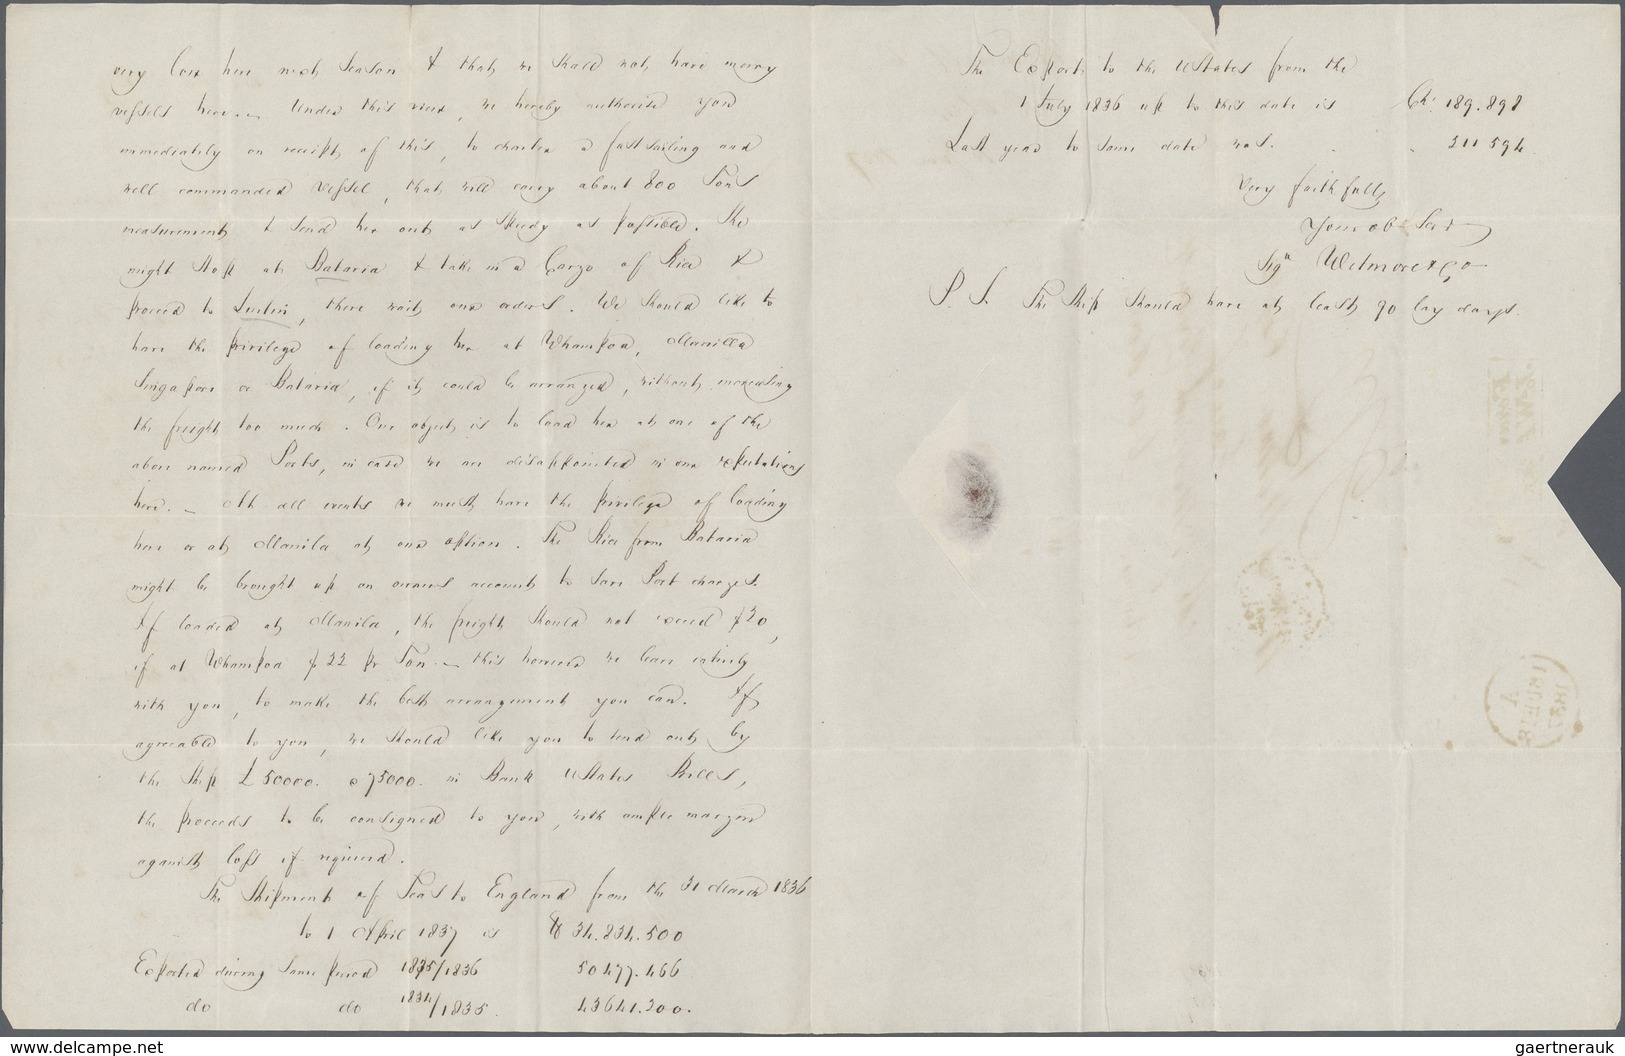 very low here next Season & that we shall not have many
vessels here. — Under this view, we hereby authorise you
immediately on receipt of this, to charter a fast sailing and
well commanded vessel, that will carry about 800 Tons
measurement & send her out as speedy as possible. She
might stop at Batavia & take in a Cargo of Rice &
proceed to Lintin, there wait our orders. We should like to
have the privilege of loading her at Whampoa, Manilla
Singapore or Batavia, if it could be arranged, without increasing
the freight too much. Our object is to load her at one of the
above named Ports, in case we are disappointed in our expectations
here. — At all events we must have the privilege of loading
here or at Manila at our option. The Rice from Batavia
might be brought up on owners account to save Port charges.
If loaded at Manila, the freight should not exceed $20,
if at Whampoa $22 pr Ton. — this however we leave entirely
with you, to make the best arrangement you can. If
agreeable to you, we should like you to send out by
the Ship £50000. o 75000. in Bank UStates Bills,
the proceeds to be consigned to you, with ample margin
against loss if required.
The Shipment of Teas to England from the 31 March 1836
to 1 April 1837 is ℔ 34.834.500
Exported during same period 1835/1836 50477.466
do do 1834/1835. 43641.200.
The Exports to the UStates from the
1 July 1836 up to this date is Ch: 189.898
Last year to same date was. 211594
Very faithfully
Your ob Serv
Sigd Wetmore & Co
P. S. The Ship should have at least 90 lay days.
www.delcampe.net
gaertnerauk